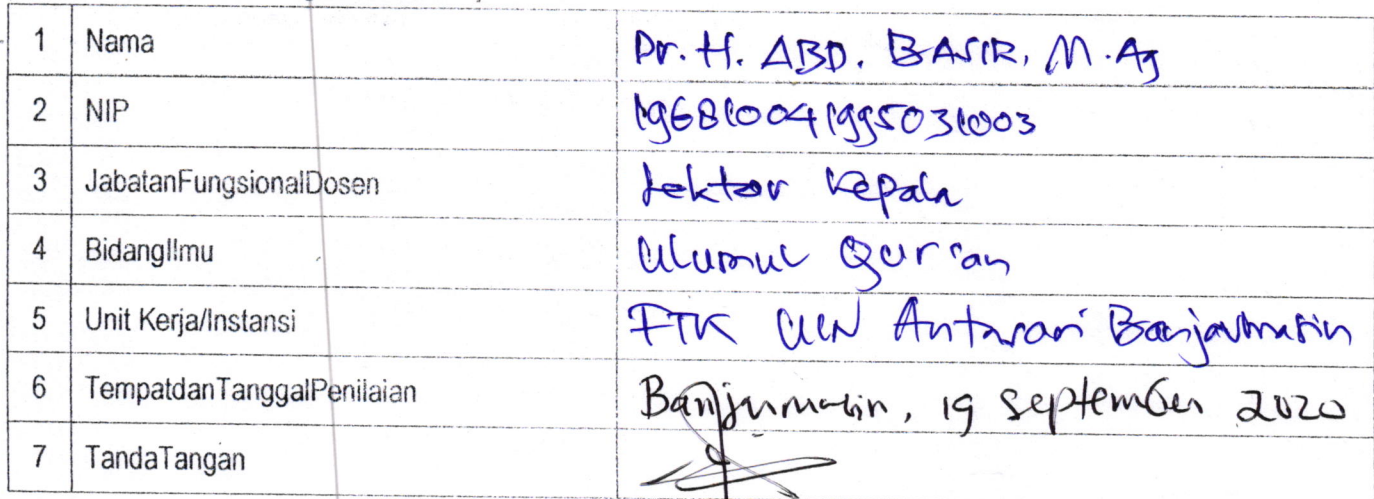 1 Nama Dr. H. ABD. BASIR, M.Ag
2 NIP 196810041995031003
3 JabatanFungsionalDosen Lektor Kepala
4 BidangIlmu Ulumul Qur'an
5 Unit Kerja/Instansi FTK UIN Antasari Banjarmasin
6 TempatdanTanggalPenilaian Banjarmasin, 19 September 2020
7 TandaTangan